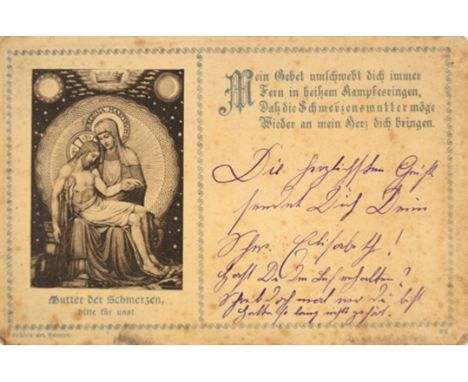 Mein Gebet umschwebt dich immer
Fern in heißem Kampfesringen,
Daß die Schmerzensmutter möge
Wieder an mein Herz dich bringen.
Die herzlichsten Grüße
sendet Dir Deine
Schw. Elisabeth!
Hast Du erhalten?
Schreib doch mal wo Du bist
so lang nichts gehört.
Mutter der Schmerzen,
bitte für uns!